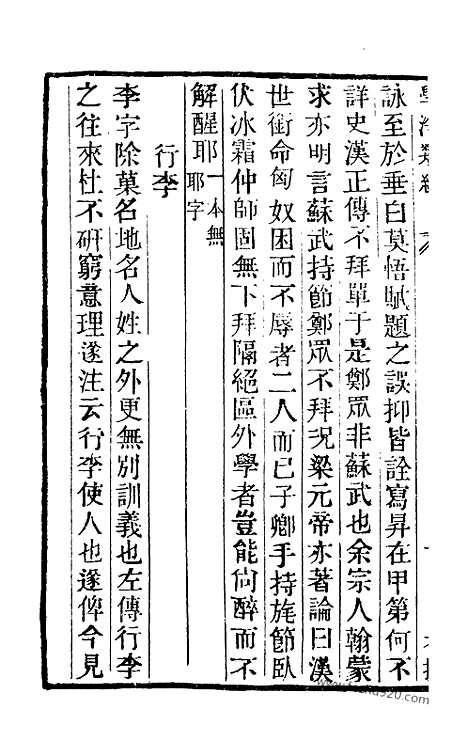 學海類編
詠至於垂白莫悟賦題之誤抑皆詮寫昇在甲第何不
詳史漢正傳不拜單于是鄭眾非蘇武也余宗人翰蒙
求亦明言蘇武持節鄭眾不拜況梁元帝亦著論曰漢
世銜命匈奴困而不辱者二人而已子卿手持旄節臥
伏冰霜仲師固無下拜隔絕區外學者豈能尙醉而不
解醒耶一本無耶字
行李
李字除菓名地名人姓之外更無別訓義也左傳行李
之往來杜不硏窮意理遂注云行李使人也遂俾今見